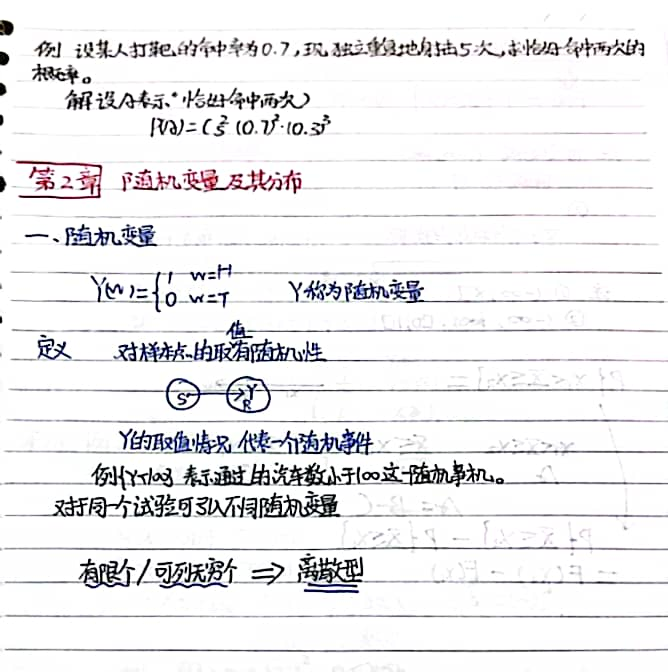 例 设某人打靶的命中率为0.7,现独立重复地射击5次,求恰好命中两次的
概率。
解 设A表示“恰好命中两次)
P(A)=C₅² (0.7)²·(0.3)³
第2章 随机变量及其分布
一、随机变量
Y(w)={1 w=H
0 w=T Y称为随机变量
定义 对样本点的取值有随机性
S → Y
R
Y的取值情况 代表一个随机事件
例{Y<100} 表示通过的汽车数小于100这一随机事机。
对于同一个试验可以不同随机变量
有限个/可列无穷个 ⇒ 离散型